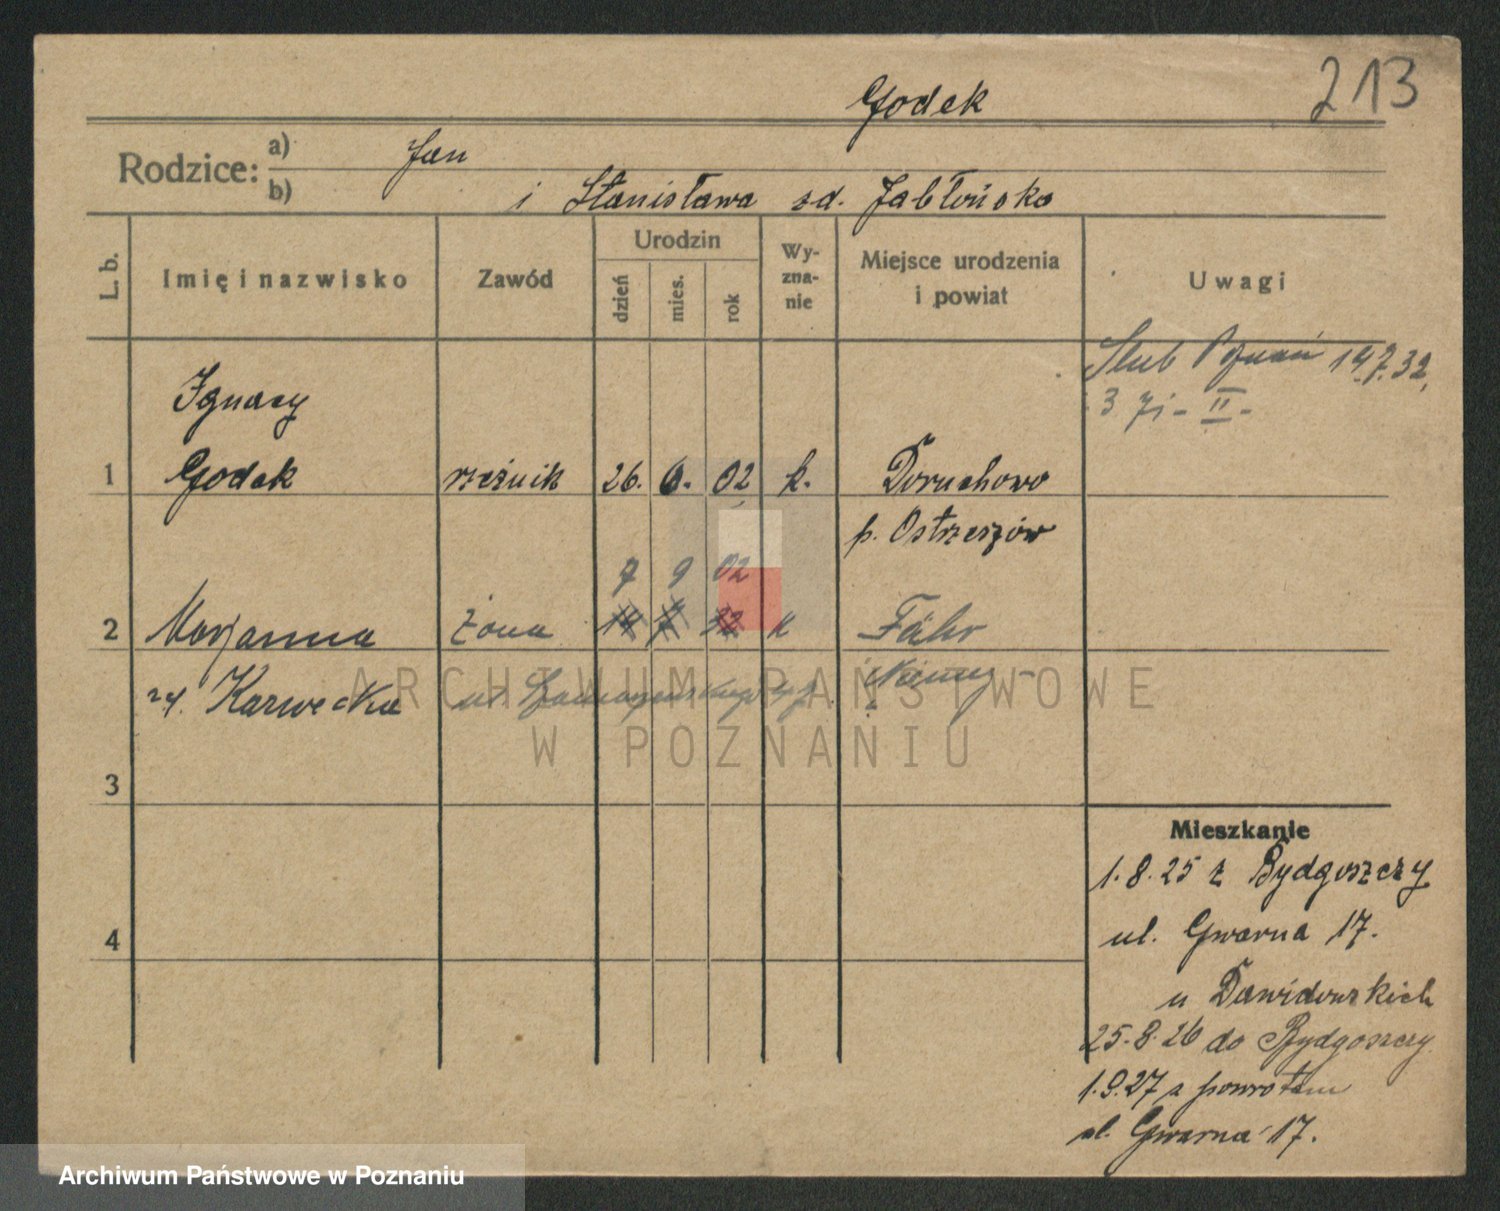 Godek
213
Rodzice: a) Jan
b) i Stanisława zd. Jabłońska
L. b.
Imię i nazwisko
Zawód
Urodzin
dzień
mies.
rok
Wy-
zna-
nie
Miejsce urodzenia
i powiat
Uwagi
Ślub Poznań 19.7.32,
Ignacy
1 Godek rzeźnik 26. 6. 02 k. Doruchowo
p. Ostrzeszów
7 9 02
2 Marjanna żona k Fähr
Karwecka Niemcy
3
4
Mieszkanie
1.8.25 z Bydgoszczy
ul. Gwarna 17.
u Dawidowskich
25.8.26 do Bydgoszczy
1.9.27 z powrotem
ul. Gwarna 17.
ARCHIWUM PAŃSTWOWE
W POZNANIU
Archiwum Państwowe w Poznaniu